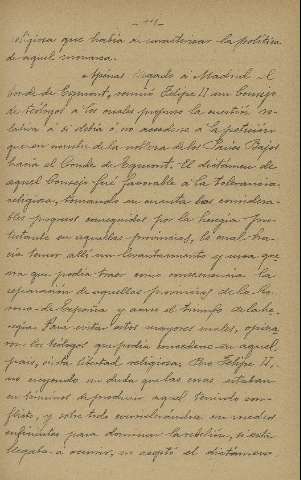 - 111 -
religiosa que había a caracterizar la política
de aquel monarca.
Apenas llegado a Madrid el
Conde de Egmont, reunió Felipe II un Consejo
de teólogos a los cuales propuso la cuestión re-
lativa a si debía o no acceder a la petición
que en nombre de la nobleza de los Países Bajos
hacía el Conde de Egmont. El dictamen de
aquel Consejo fué favorable a la tolerancia
religiosa, tomando en cuenta los considera-
bles progresos conseguidos por la heregia pro-
testante en aquellas provincias, lo cual ha-
cía temer allí un levantamiento y guerra que
era que podía traer como consecuencia la
separación de aquellas provincias de la Co-
rona de España y acaso el triunfo de la he-
regia. Para evitar estos mayores males, opina-
ron los teólogos que podía concederse en aquel
pais, cierta libertad religiosa; Pero Felipe II,
no creyendo sin duda que las cosas estaban
en términos de producir aquel temido con-
flicto, y sobre todo considerándose con medios
suficientes para dominar la rebelión, si ésta
llegaba a ocurrir, no aceptó el dictamen